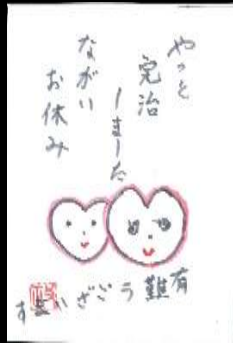 やっと
完治
しました
ながい
お休み
有難うございます